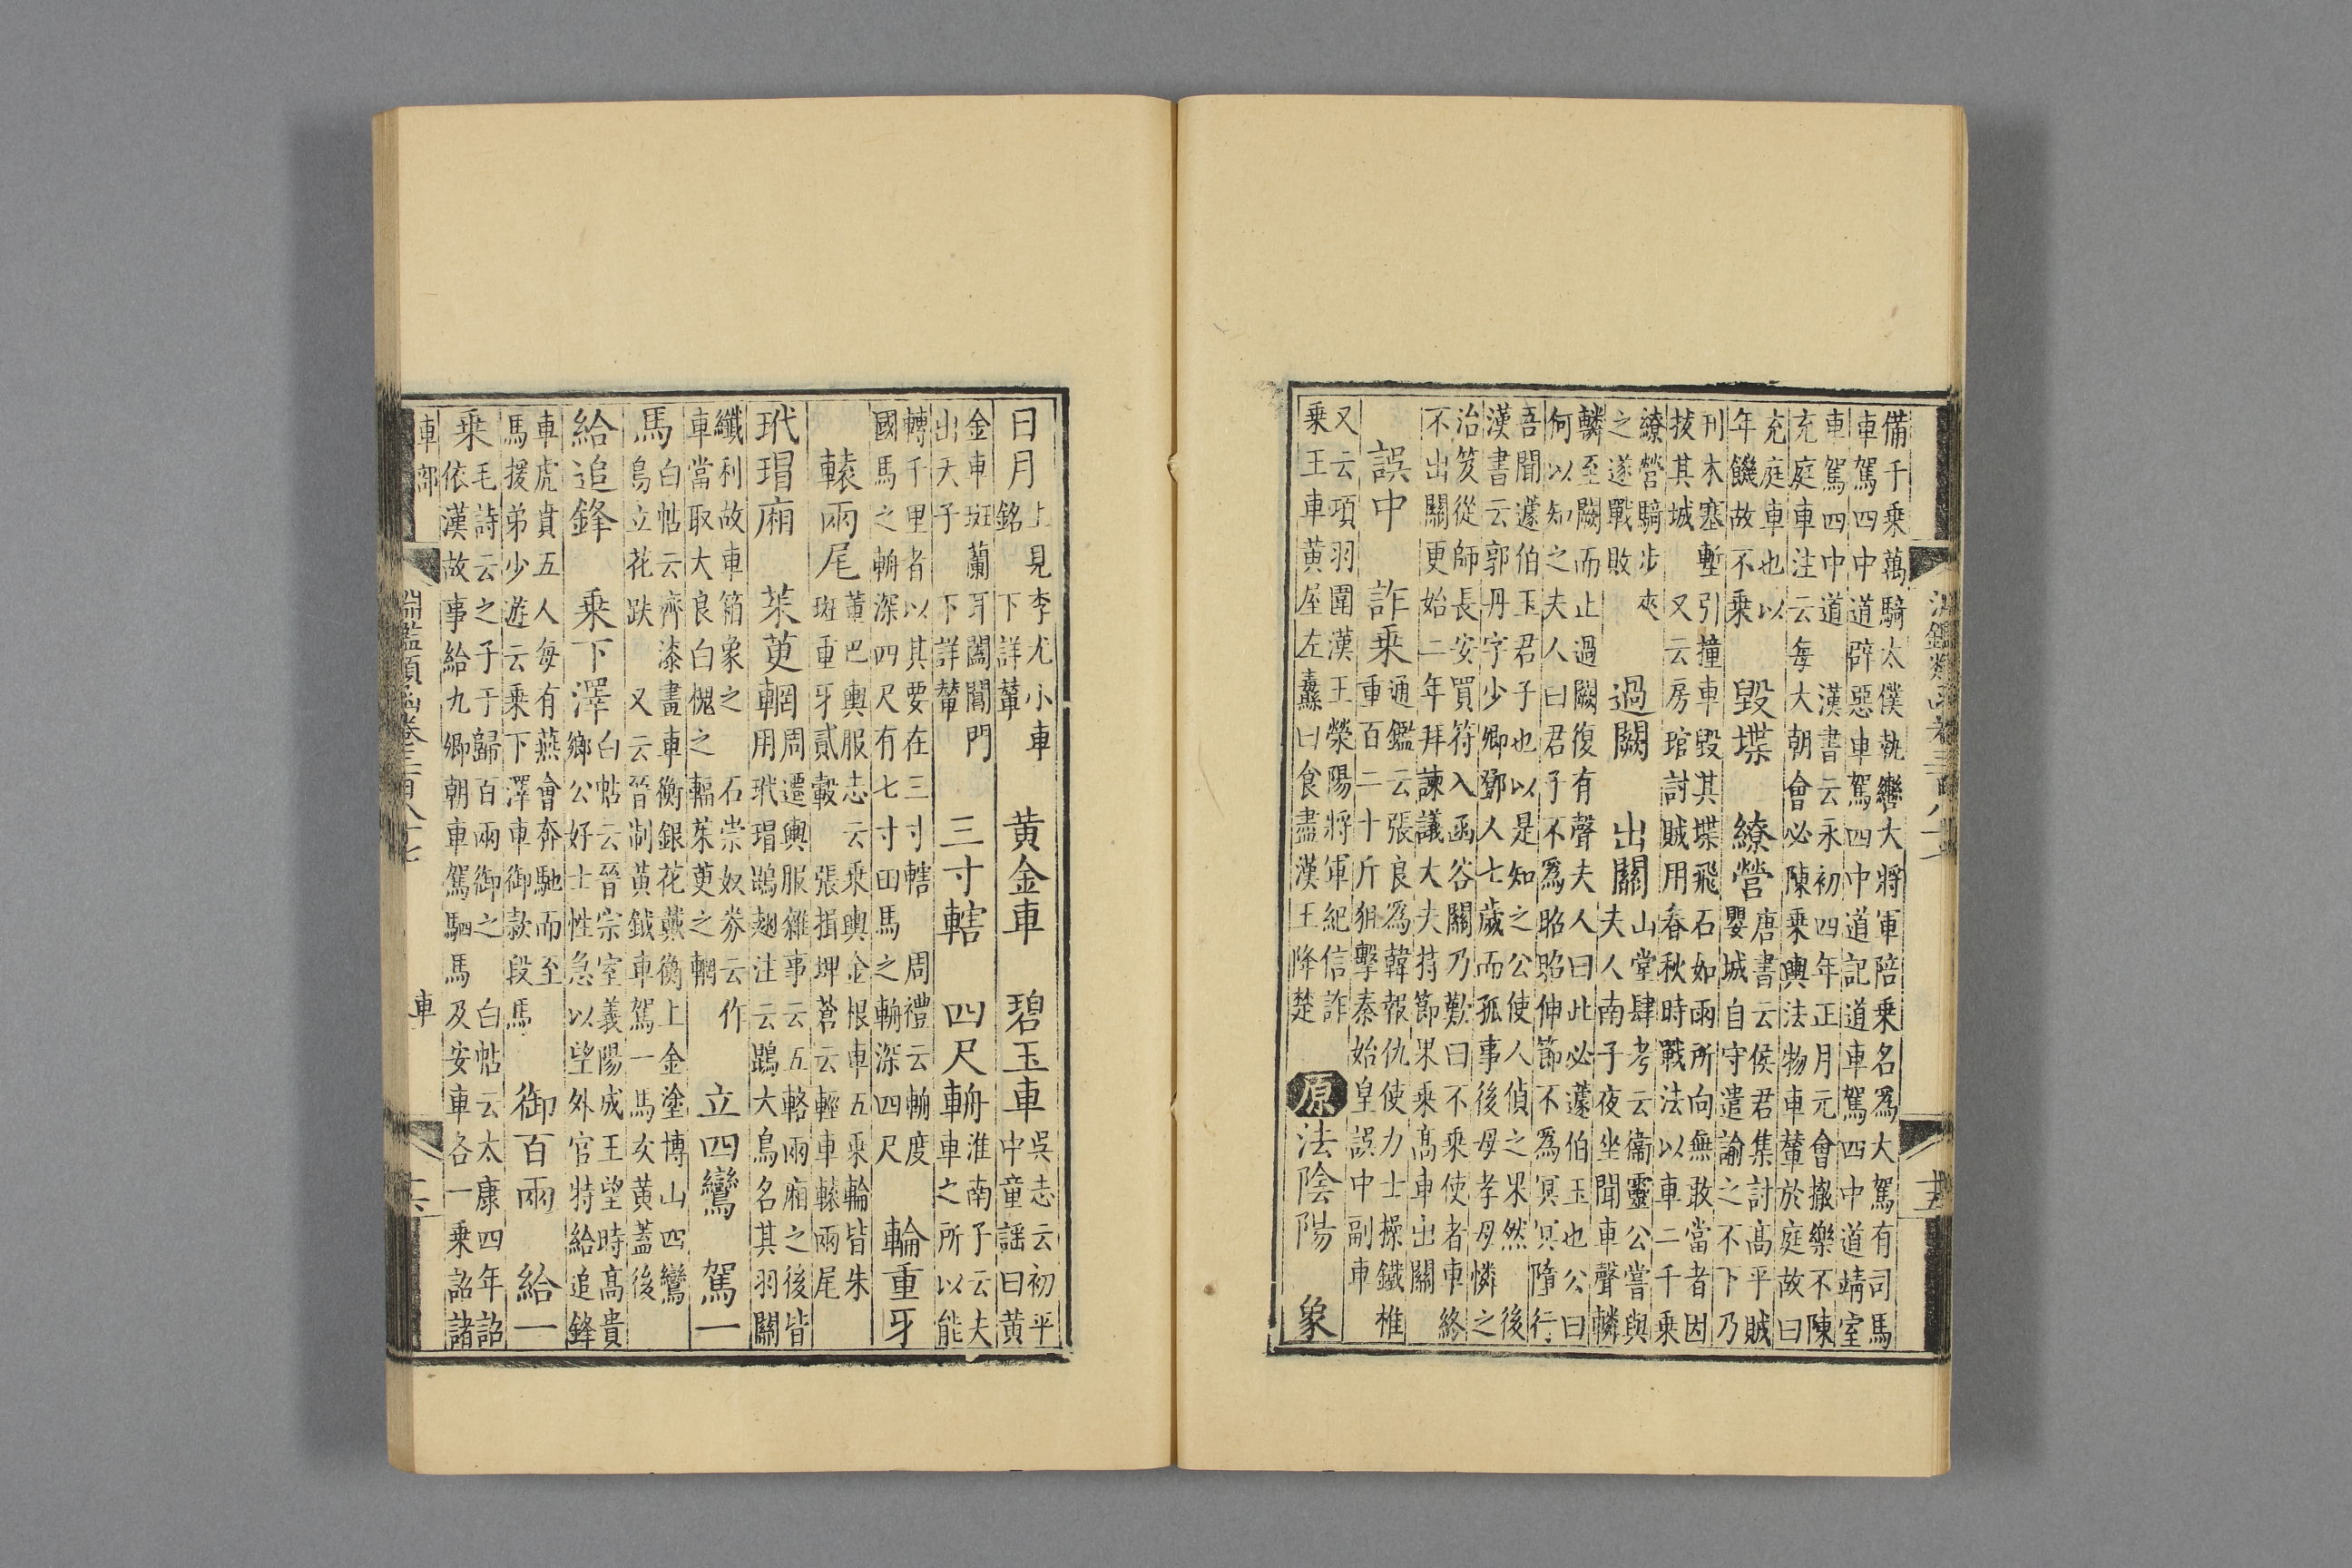 備千乗萬騎太僕執轡大將軍陪乗名爲大駕有司馬
車駕四中道辟惡車駕四中道記道車駕四中道靖室
車駕四中道 漢書云永初四年正月元會撤樂不陳
充庭車注云每大朝會必陳乗輿法物車輦於庭故曰
充庭車也以
年饑故不乗
毀堞
繚營
唐書云侯君集討髙平賊
嬰城自守遣諭之不下乃
刊木塞塹引撞車毀其堞飛石如雨所向無敢當者因
拔其城 又云房琯討賊用春秋時戰法以車二千乗
繚營騎步夾
之遂戰敗
過闕
出關
山堂肆考云衞靈公嘗與
夫人南子夜坐聞車聲轔
轔至闕而止過闕復有聲夫人曰此必蘧伯玉也公曰
何以知之夫人曰君子不爲昭昭伸節不爲冥冥隋行
吾聞蘧伯玉君子也以是知之公使人偵之果然 後
漢書云郭丹字少卿鄧人七歲而孤事後母孝母憐之
治笈從師長安買符入函谷關乃歎曰不乗使者車終
不出關更始二年拜諫議大夫持節果乗髙車出關
誤中
詐乗
通鑑云張良爲韓報仇使力士操鐵椎
重百二十斤狙擊秦始皇誤中副車
又云項羽圍漢王滎陽將軍紀信詐
乗王車黄屋左纛曰食盡漢王降楚
原
法陰陽
象
日月
上見李尤小車
銘 下詳輦
黄金車
碧玉車
吳志云初平
中童謡曰黄
金車斑蘭耳闓閶門
出天子 下詳輦
三寸轄
四尺輈
淮南子云夫
車之所以能
轉千里者以其要在三寸轄 周禮云輈度
國馬之輈深四尺有七寸田馬之輈深四尺
輪重牙
轅兩尾
董巴輿服志云乗輿金根車五乗輪皆朱
斑重牙貳轂 張揖埤蒼云輕車轅兩尾
玳瑁廂
茱萸輞
周遷輿服雜事云五輅兩廂之後皆
用玳瑁鵾翅注云鵾大鳥名其羽關
纖利故車箱象之 石崇奴劵云作
車當取大良白槐之輻茱萸之輞
立四鸞
駕一
馬
白帖云齊漆畫車衡銀花蔕衡上金塗博山四鸞
鳥立花趺 又云晉制黄鉞車駕一馬亥黄蓋後
給追鋒
乗下澤
白帖云晉宗室義陽成王望時髙貴
鄉公好士性急以望外官特給追鋒
車虎賁五人每有燕會奔馳而至
馬援弟少遊云乗下澤車御款段馬
御百兩
給一
乗
毛詩云之子于歸百兩御之 白帖云太康四年詔
依漢故事給九卿朝車駕駟馬及安車各一乗詔諸
車部
淵鑑類函卷三百八十七
車